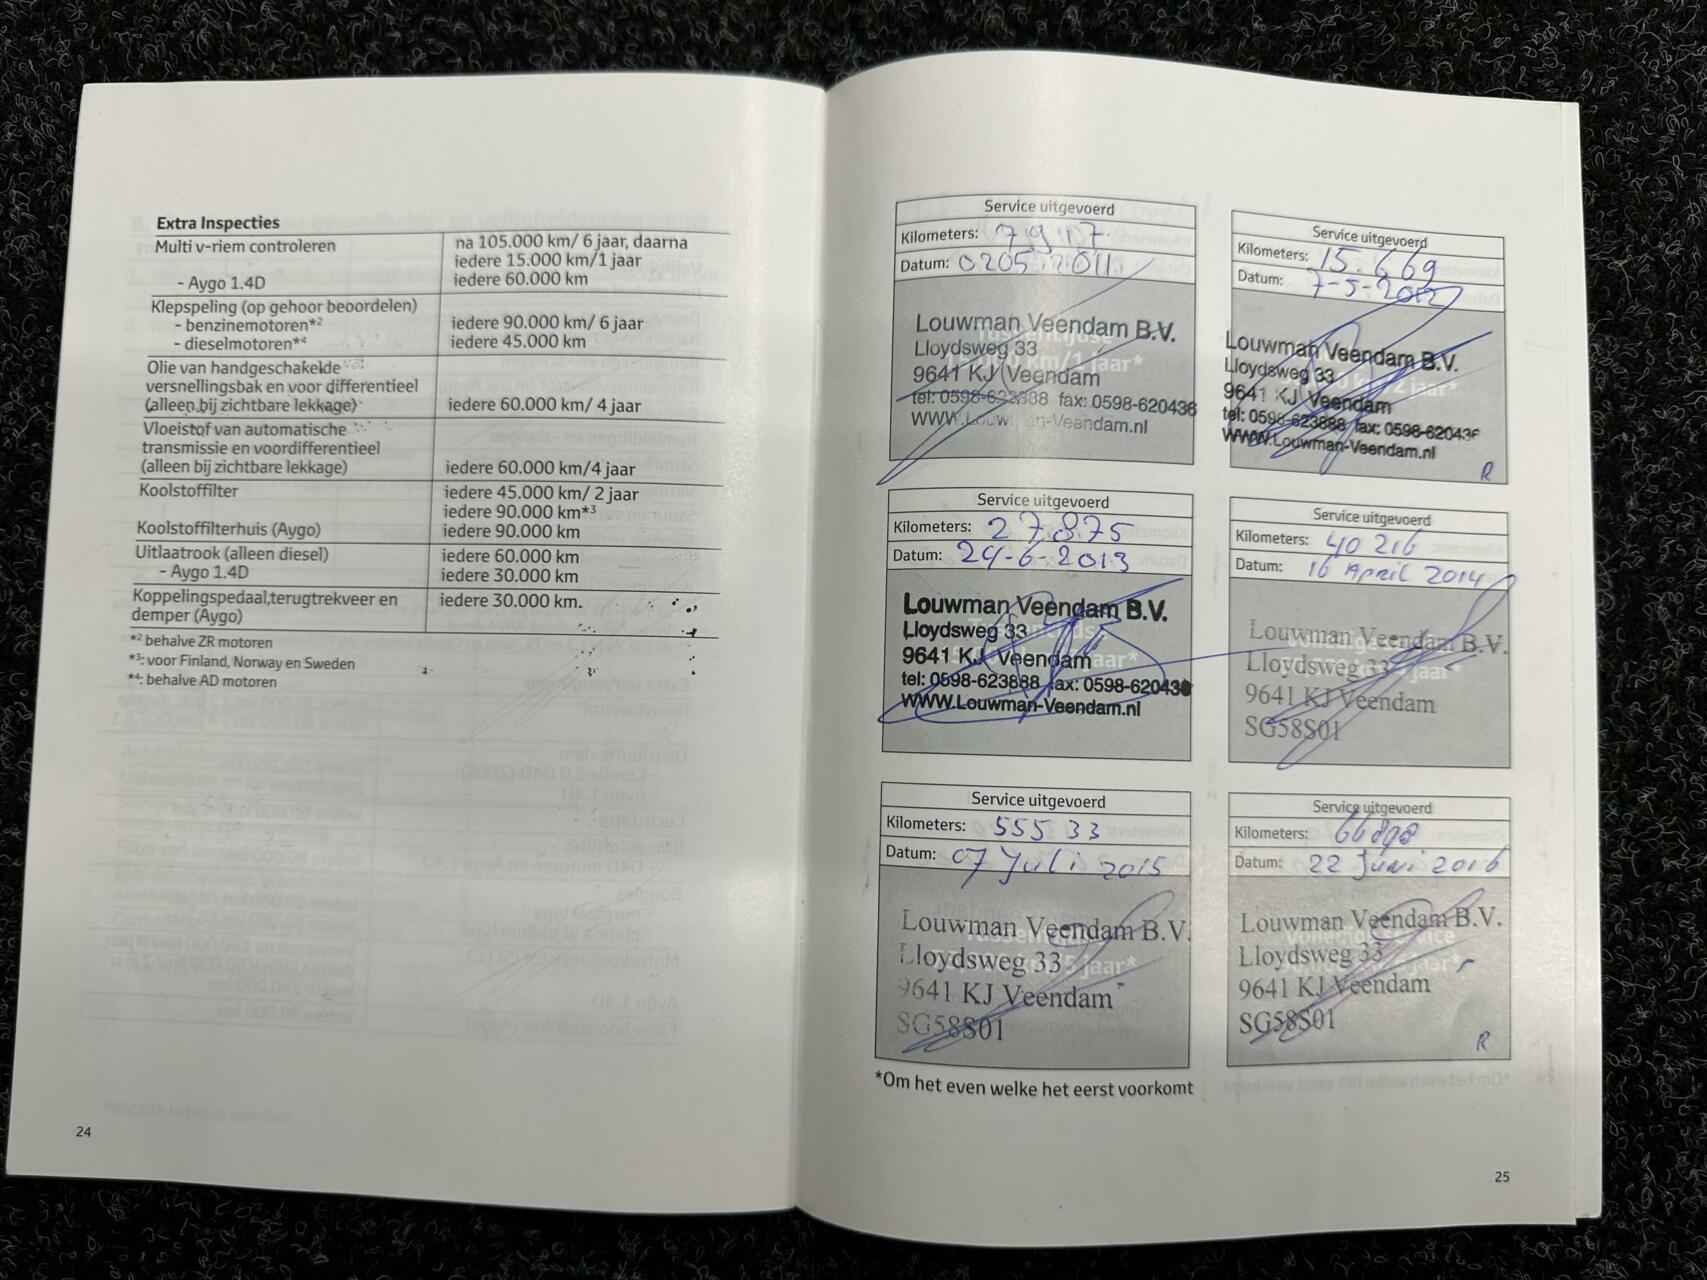 Extra Inspecties
Multi v-riem controleren na 105.000 km/ 6 jaar, daarna
iedere 15.000 km/1 jaar
- Aygo 1.4D iedere 60.000 km
Klepspeling (op gehoor beoordelen)
- benzinemotoren*2 iedere 90.000 km/ 6 jaar
- dieselmotoren*4 iedere 45.000 km
Olie van handgeschakelde
versnellingsbak en voor differentieel
(alleen bij zichtbare lekkage) iedere 60.000 km/ 4 jaar
Vloeistof van automatische
transmissie en voordifferentieel
(alleen bij zichtbare lekkage) iedere 60.000 km/4 jaar
Koolstoffilter iedere 45.000 km/ 2 jaar
iedere 90.000 km*3
Koolstoffilterhuis (Aygo) iedere 90.000 km
Uitlaatrook (alleen diesel) iedere 60.000 km
- Aygo 1.4D iedere 30.000 km
Koppelingspedaal,terugtrekveer en iedere 30.000 km.
demper (Aygo)
*2 behalve ZR motoren
*3: voor Finland, Norway en Sweden
*4: behalve AD motoren
24
Service uitgevoerd
Kilometers:
Datum: 02052011
Louwman Veendam B.V.
Lloydsweg 33
9641 KJ Veendam
tel: 0598-623888 fax: 0598-620436
WWW.Louwman-Veendam.nl
Service uitgevoerd
Kilometers: 15.669
Datum: 7-5-2012
Louwman Veendam B.V.
Lloydsweg 33
9641 KJ Veendam
tel: 0598-623888 fax: 0598-620436
WWW.Louwman-Veendam.nl
R
Service uitgevoerd
Kilometers: 27.875
Datum: 24-6-2013
Louwman Veendam B.V.
Lloydsweg 33
9641 KJ Veendam
tel: 0598-623888 fax: 0598-620436
WWW.Louwman-Veendam.nl
Service uitgevoerd
Kilometers: 40 216
Datum: 16 April 2014
Louwman Veendam B.V.
Lloydsweg 33
9641 KJ Veendam
SG58S01
Service uitgevoerd
Kilometers: 555 33
Datum: 07 Juli 2015
Louwman Veendam B.V.
Lloydsweg 33
9641 KJ Veendam
SG58S01
Service uitgevoerd
Kilometers: 66898
Datum: 22 Juni 2016
Louwman Veendam B.V.
Lloydsweg 33
9641 KJ Veendam
SG58S01
R
*Om het even welke het eerst voorkomt
25